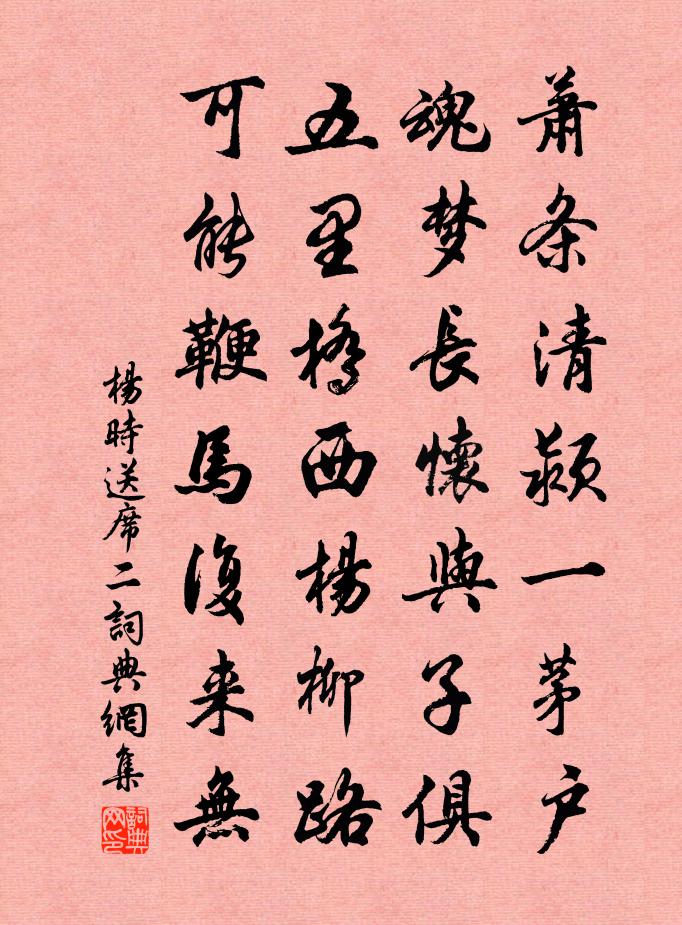 萧条清颍一茅户
魂梦長懷與子俱
五里橋西楊柳路
可能鞭馬復来無
楊時送席二詞典網集
詞典网印